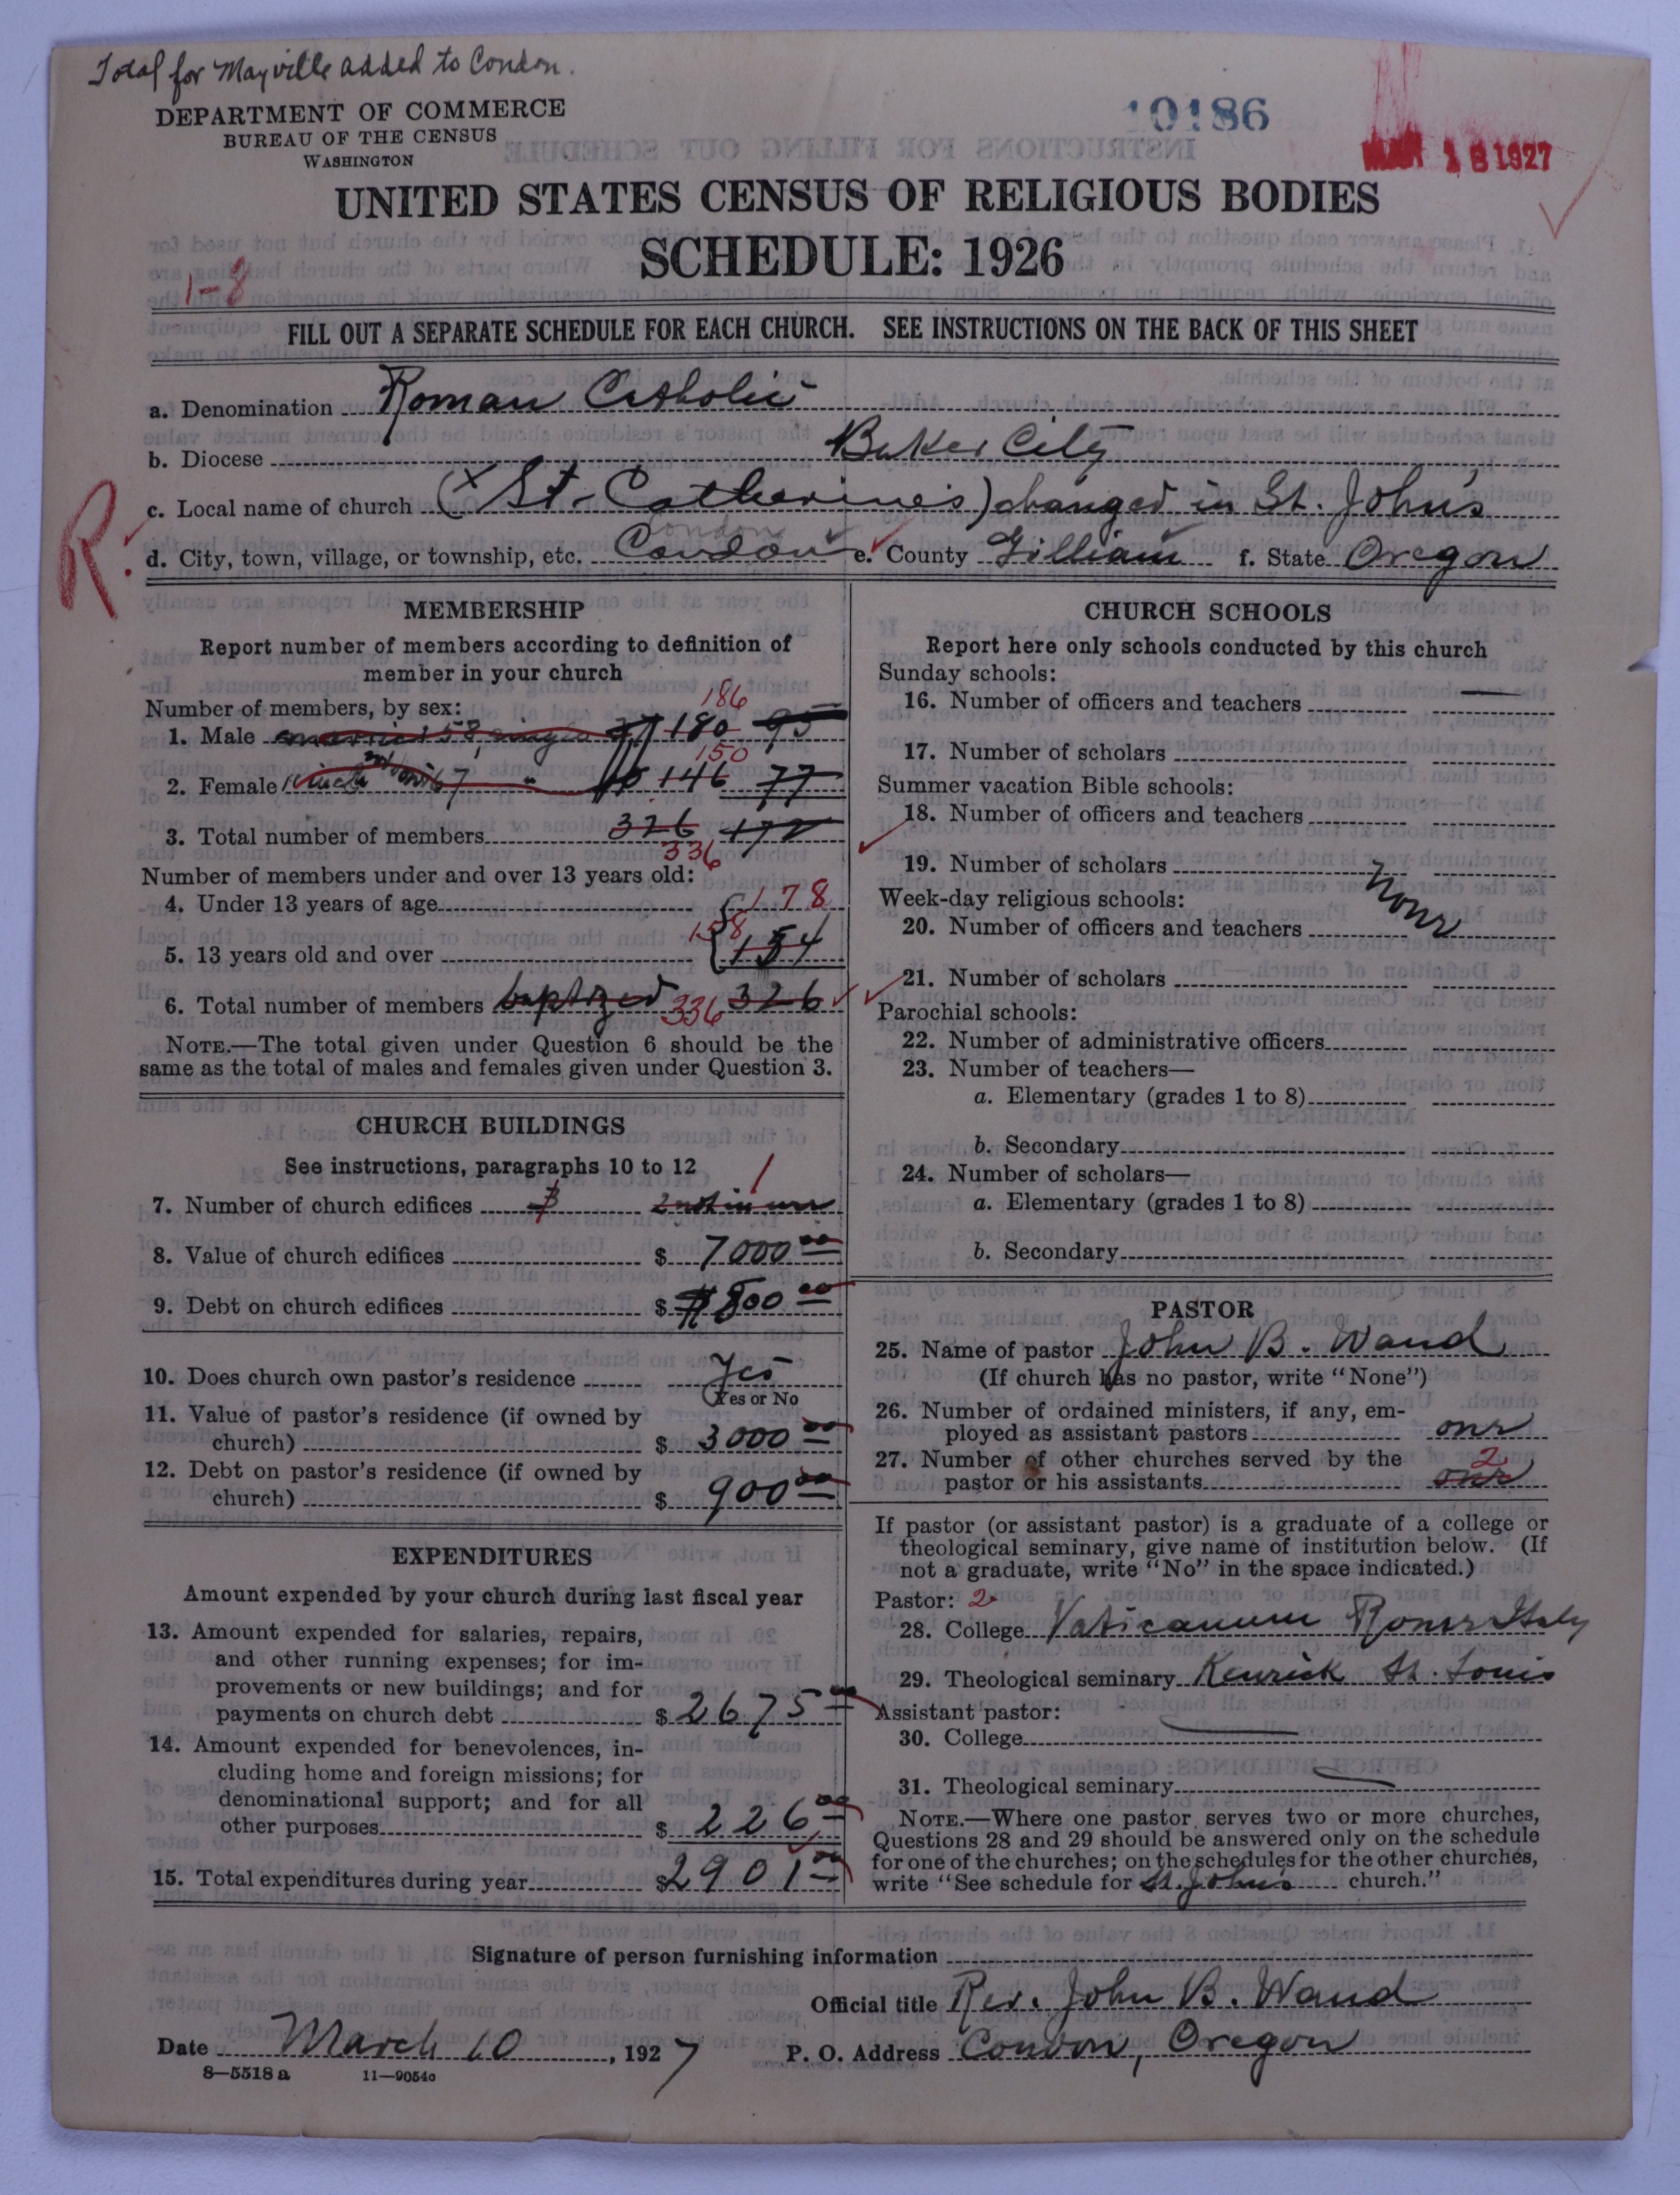 Total for Mayville added to Condon.
DEPARTMENT OF COMMERCE
BUREAU OF THE CENSUS
WASHINGTON
10186
MAR 18 1927
UNITED STATES CENSUS OF RELIGIOUS BODIES
SCHEDULE: 1926
1-8
FILL OUT A SEPARATE SCHEDULE FOR EACH CHURCH. SEE INSTRUCTIONS ON THE BACK OF THIS SHEET
a. Denomination Roman Catholic
b. Diocese Baker City
R.
c. Local name of church (x St. Catherine's) changed in St. John's
Condon
d. City, town, village, or township, etc. Condon e. County Gilliam f. State Oregon
MEMBERSHIP
Report number of members according to definition of
member in your church
Number of members, by sex:
186
1. Male married 58, single 37 180 95
150
2. Female 67 146 77
3. Total number of members 326 172
336
Number of members under and over 13 years old:
4. Under 13 years of age 178
158
5. 13 years old and over 154
6. Total number of members baptized 336 326
NOTE.—The total given under Question 6 should be the
same as the total of males and females given under Question 3.
CHURCH BUILDINGS
See instructions, paragraphs 10 to 12
1
7. Number of church edifices 3 2 not in use
8. Value of church edifices $ 7000.00
9. Debt on church edifices $ 800.00
10. Does church own pastor's residence Yes
(Yes or No
11. Value of pastor's residence (if owned by
church) $ 3000.00
12. Debt on pastor's residence (if owned by
church) $ 900.00
EXPENDITURES
Amount expended by your church during last fiscal year
13. Amount expended for salaries, repairs,
and other running expenses; for im-
provements or new buildings; and for
payments on church debt $ 2675.00
14. Amount expended for benevolences, in-
cluding home and foreign missions; for
denominational support; and for all
other purposes $ 226.00
15. Total expenditures during year $ 2901.00
CHURCH SCHOOLS
Report here only schools conducted by this church
Sunday schools:
16. Number of officers and teachers
17. Number of scholars
Summer vacation Bible schools:
18. Number of officers and teachers
19. Number of scholars
Week-day religious schools:
None
20. Number of officers and teachers
21. Number of scholars
Parochial schools:
22. Number of administrative officers
23. Number of teachers—
a. Elementary (grades 1 to 8)
b. Secondary
24. Number of scholars—
a. Elementary (grades 1 to 8)
b. Secondary
PASTOR
25. Name of pastor John B. Wand
(If church has no pastor, write "None")
26. Number of ordained ministers, if any, em-
ployed as assistant pastors one
27. Number of other churches served by the
2
pastor or his assistants one
If pastor (or assistant pastor) is a graduate of a college or
theological seminary, give name of institution below. (If
not a graduate, write "No" in the space indicated.)
Pastor: 2
28. College Vaticanum Rome Italy
29. Theological seminary Kenrick St. Louis
Assistant pastor:
30. College
31. Theological seminary
NOTE.—Where one pastor serves two or more churches,
Questions 28 and 29 should be answered only on the schedule
for one of the churches; on the schedules for the other churches,
write "See schedule for St. John's church."
Signature of person furnishing information
Official title Rev. John B. Wand
Date March 10, 1927 P. O. Address Condon, Oregon
8—5518 a 11—9054c